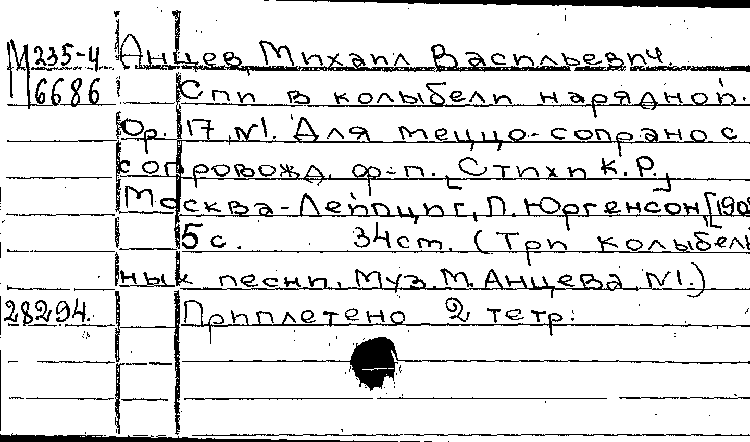 М 235-4 Анцев, Михаил Васильевич.
6686 Спи в колыбели нарядной.
Op. 17, N1. Для меццо-сопрано с
сопровожд. ф-п. [Стихи К.Р.]
Москва-Лейпциг, П. Юргенсон, [190
5 с. 34 cm. (Три колыбель
ных песни. Муз. М. Анцева. N1.)
28294. Приплетено 2 тетр.